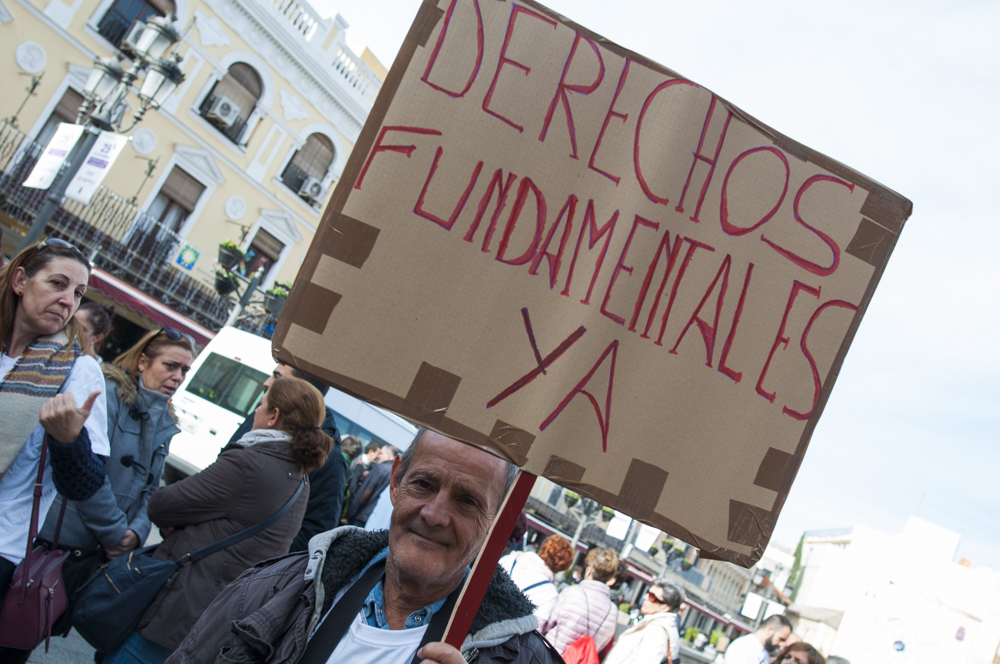 DERECHOS
FUNDAMENTALES
YA